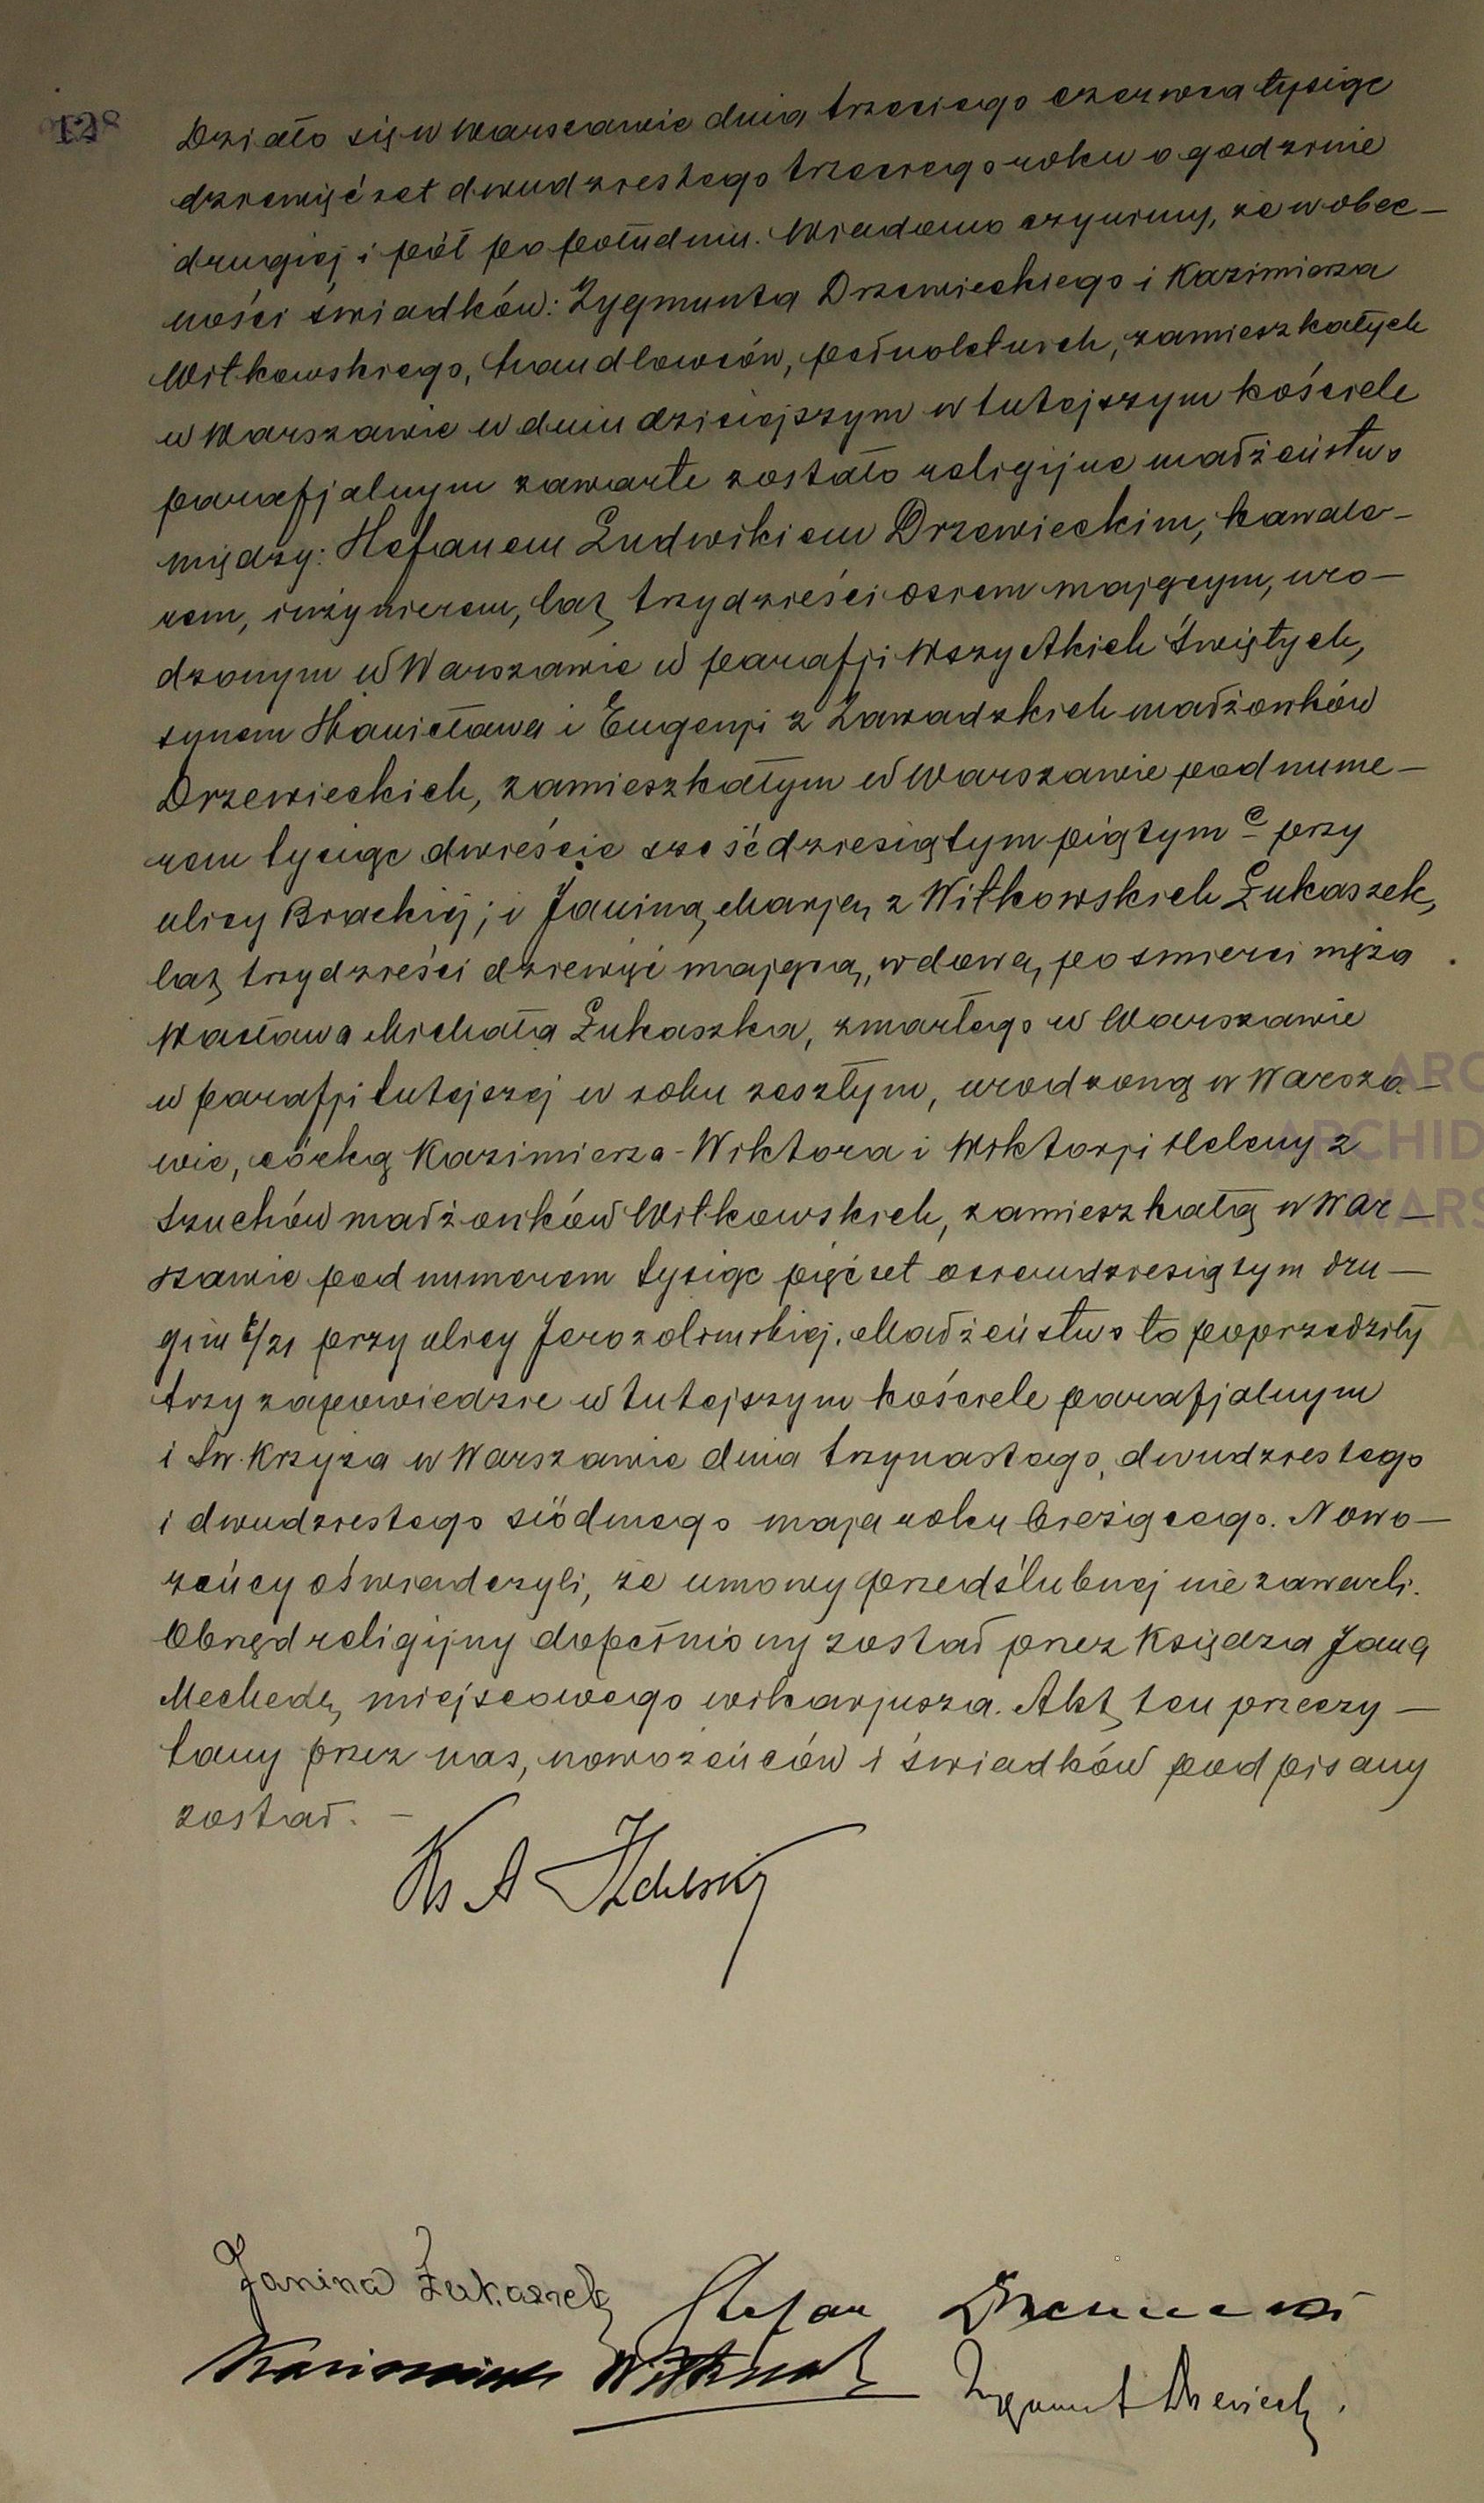 128
Działo się w Warszawie dnia trzeciego czerwca tysiąc
dziewięćset dwudziestego trzeciego roku o godzinie
drugiej i pół po południu. Wiadomo czynimy, że w obec-
ności świadków: Zygmunta Drzewieckiego i Kazimierza
Witkowskiego, handlowców, pełnoletnich, zamieszkałych
w Warszawie w dniu dzisiejszym w tutejszym kościele
parafjalnym zawarte zostało religijne małżeństwo
między: Stefanem Ludwikiem Drzewieckim, kawale-
rem, inżynierem, lat trzydzieści osiem mającym, uro-
dzonym w Warszawie w parafji Wszystkich Świętych,
synem Stanisława i Eugenji z Zawadzkich małżonków
Drzewieckich, zamieszkałym w Warszawie pod nume-
rem tysiąc dwieście sześćdziesiątym piątym c przy
ulicy Brackiej; i Janiną Marją z Witkowskich Łukaszek,
lat trzydzieści dziewięć mającą, wdową po śmierci męża
Wacława Michała Łukaszka, zmarłego w Warszawie
w parafji tutejszej w roku zeszłym, urodzoną w Warsza-
wie, córką Kazimierza-Wiktora i Wiktorji Heleny z
Szuchów małżonków Witkowskich, zamieszkałą w War-
szawie pod numerem tysiąc pięćset osiemdziesiątym dru-
gim /21 przy ulicy Jerozolimskiej. Małżeństwo to poprzedziły
trzy zapowiedzie w tutejszym kościele parafjalnym
i Św. Krzyża w Warszawie dnia trzynastego, dwudziestego
i dwudziestego siódmego maja roku bieżącego. Nowo-
żeńcy oświadczyli, że umowy przedślubnej nie zawarli.
Obrzęd religijny dopełniony został przez Księdza Jana
Mechedę, miejscowego wikarjusza. Akt ten przeczy-
tany przez nas, nowożeńców i świadków podpisany
został. -
Ks A
Janina Łukaszek Stefan Drzewiecki
Kazimierz Witkowski Zygmunt Drzewiecki.
ARC
ARCHID
WARS